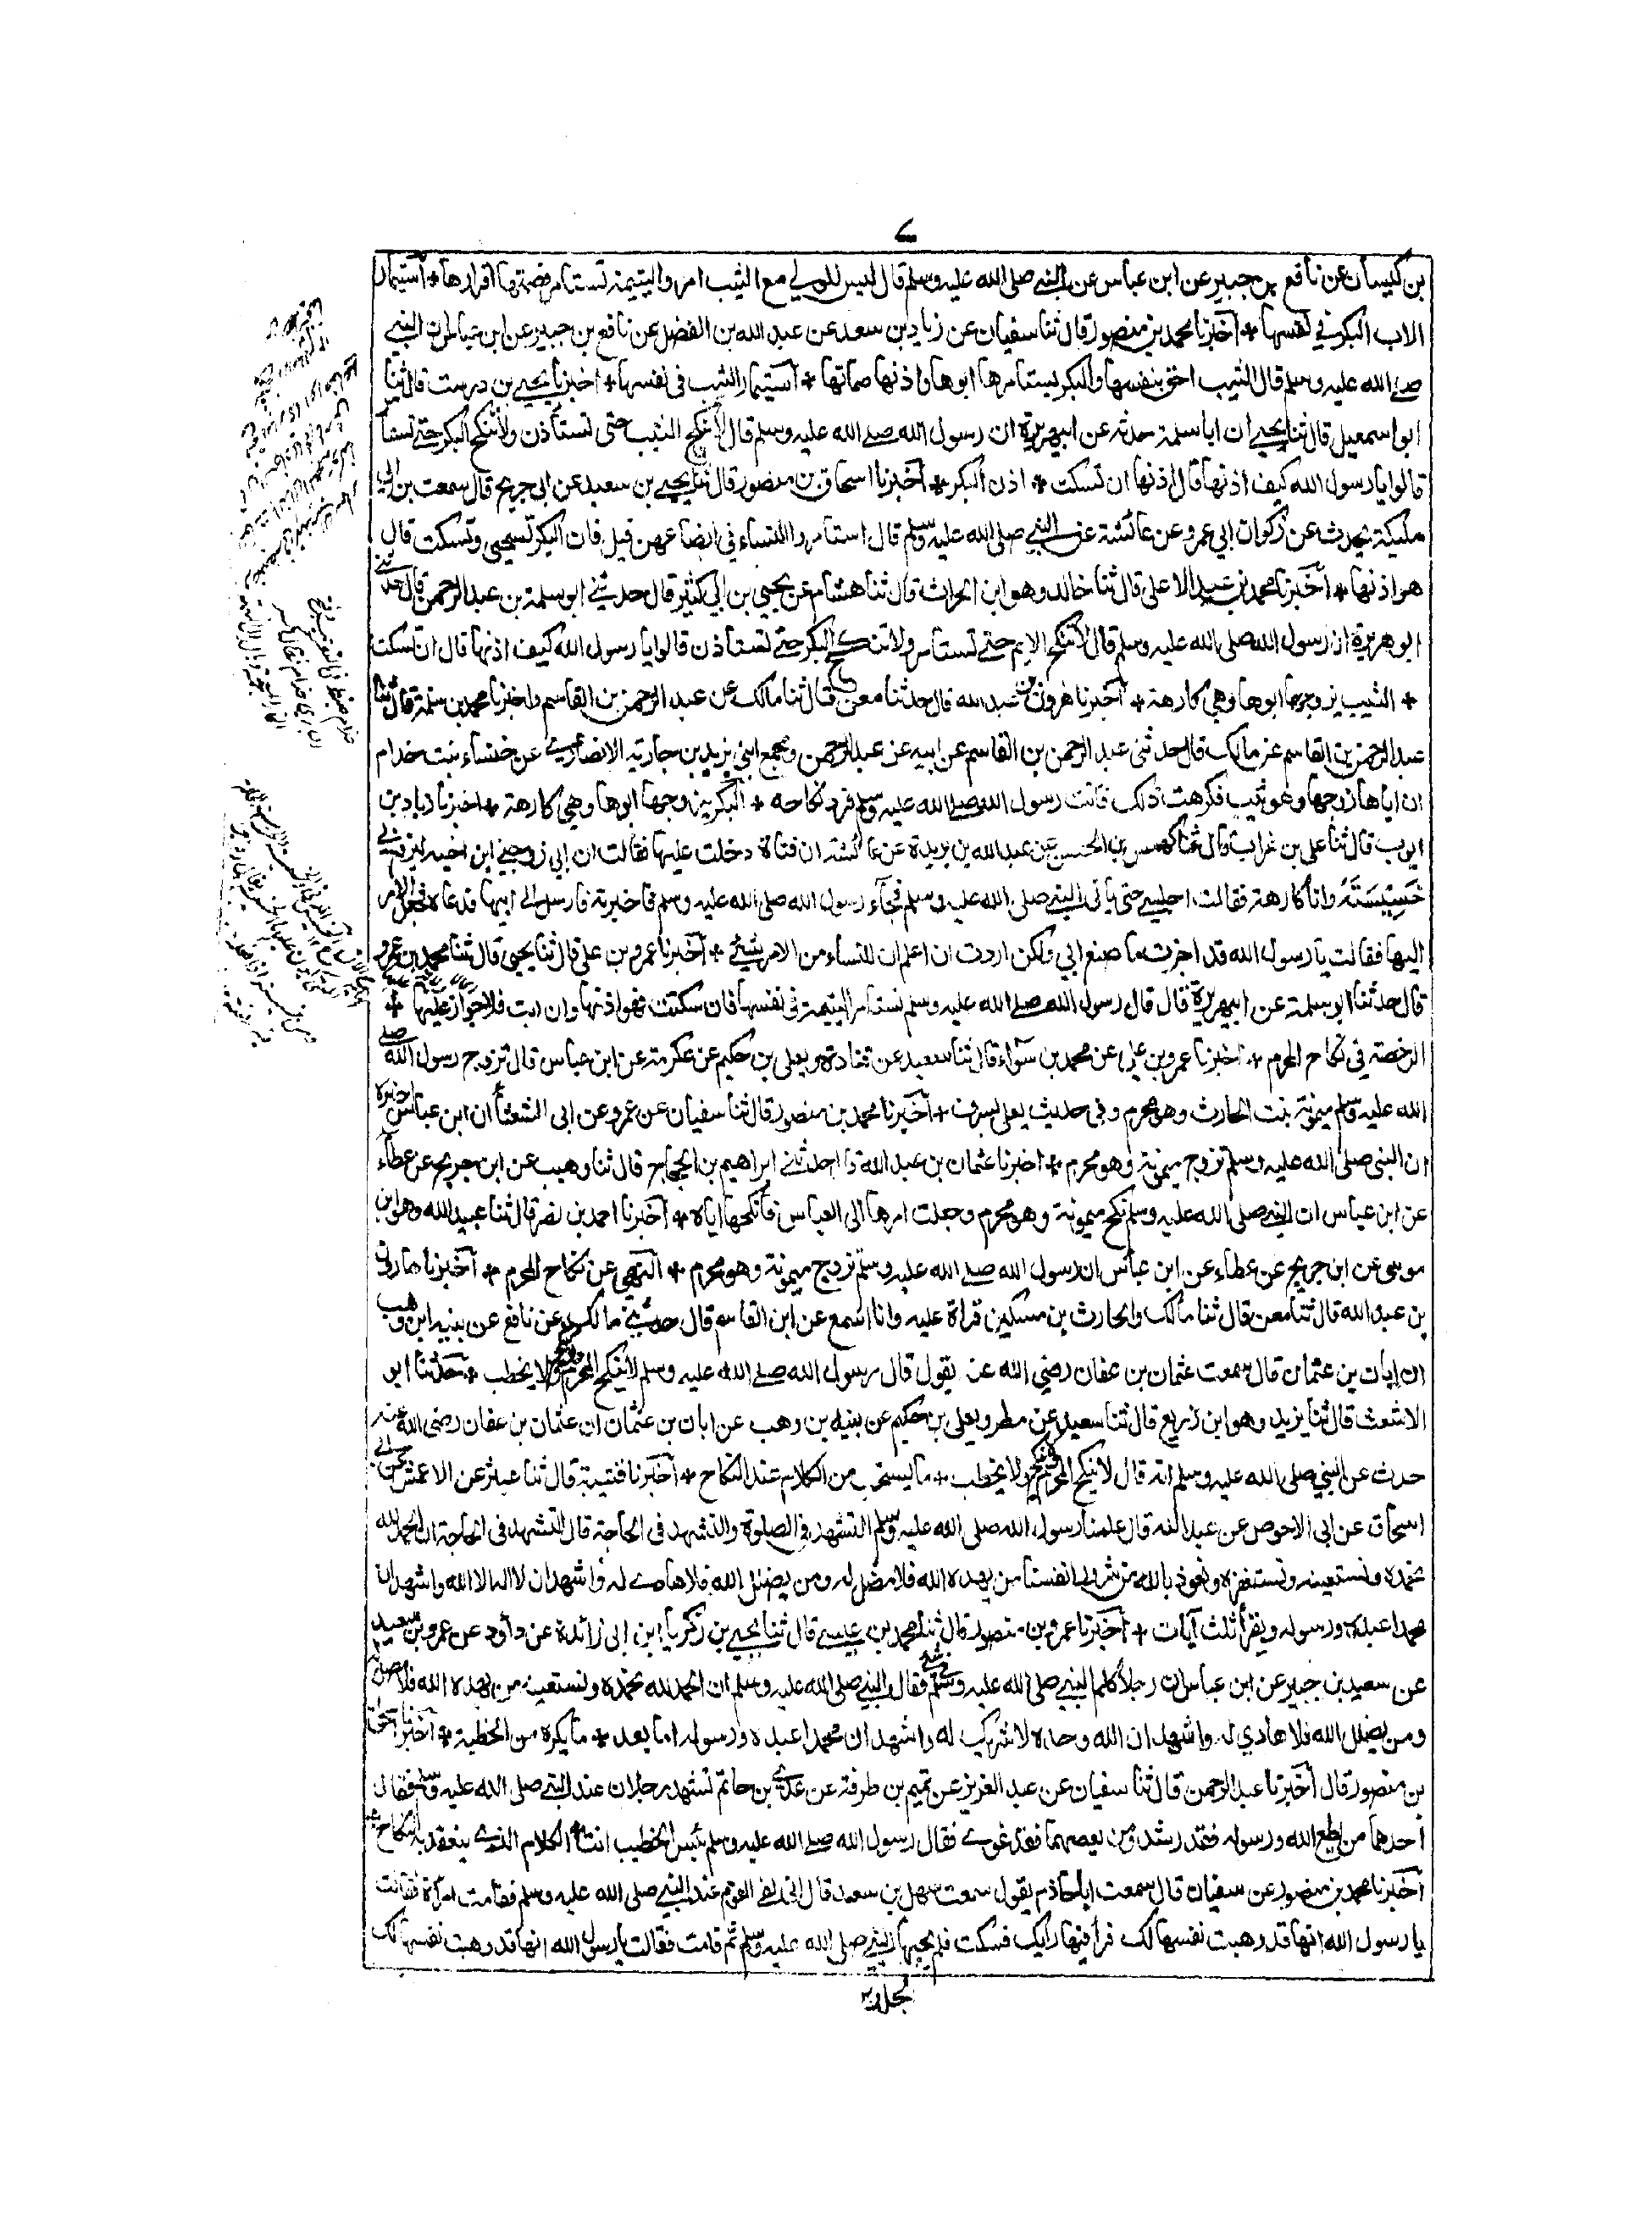 بن كيسان عن نافع بن جبير عن ابن عباس عن النبي صلى الله عليه وسلم قال ليس للولي مع الثيب امر واليتيمة تستامر فصمتها اقرارها * استيمار
الاب البكر في نفسها * اخبرنا محمد بن منصور قال ثنا سفيان عن زياد بن سعد عن عبد الله بن الفضل عن نافع بن جبير عن ابن عباس ان النبي
صلى الله عليه وسلم قال الثيب احق بنفسها والبكر يستامرها ابوها واذنها صماتها * استيمار الثيب في نفسها * اخبرنا يحيى بن درست قال ثنا
ابو اسمعيل قال ثنا يحيى ان ابا سلمة حدثه عن ابي هريرة ان رسول الله صلى الله عليه وسلم قال لا تنكح الثيب حتى تستأذن ولا تنكح البكر حتى تستأ
قالوا يا رسول الله كيف اذنها قال اذنها ان تسكت * اذن البكر * اخبرنا اسحاق بن منصور قال ثنا يحيى بن سعيد عن ابن جريج قال سمعت بن ابي
مليكة يحدث عن ذكوان ابي عمرو عن عائشة عن النبي صلى الله عليه وسلم قال استامروا النساء في ابضاعهن قيل فان البكر تستحيى وتسكت قال
هو اذنها * اخبرنا محمد بن عبد الاعلى قال ثنا خالد وهو ابن الحراث قال ثنا هشام عن يحيى بن ابي كثير قال حدثني ابو سلمة بن عبد الرحمن قال حدثني
ابو هريرة ان رسول الله صلى الله عليه وسلم قال لا تنكح الايم حتى تستامر ولا تنكح البكر حتى تستاذن قالوا يا رسول الله كيف اذنها قال ان تسكت
* الثيب يزوجها ابوها وهي كارهة * اخبرنا هرون بن عبد الله قال حدثنا معن قال ثنا مالك عن عبد الرحمن بن القاسم واخبرنا محمد بن سلمة قال ثنا
عبد الرحمن بن القاسم عن مالك قال حدثنى عبد الرحمن بن القاسم عن ابيه عن عبد الرحمن ومجمع ابني يزيد بن جارية الانصاري عن خنساء بنت خدام
ان اباها زوجها وهي ثيب فكرهت ذلك فاتت رسول الله صلى الله عليه وسلم فرد نكاحه * البكر يزوجها ابوها وهي كارهة * اخبرنا زياد بن
ايوب قال ثنا علي بن غراب قال ثنا كهمس بن الحسن عن عبد الله بن بريدة عن عائشة ان فتاة دخلت عليها فقالت ان ابي زوجني ابن اخيه ليرفع بي
خَسِيْسَتَهُ وانا كارهة فقالت اجلسي حتى ياتى النبي صلى الله عليه وسلم فجاء رسول الله صلى الله عليه وسلم فاخبرته فارسل الى ابيها فدعاه فجعل الامر
اليها فقالت يا رسول الله قد اجزت ما صنع ابي ولكن اردت ان اعلم ان للنساء من الامر شيئ * اخبرنا عمرو بن علي قال ثنا يحيى قال ثنا محمد بن عمرو
قال حدثنا ابو سلمة عن ابي هريرة قال قال رسول الله صلى الله عليه وسلم تستامر اليتيمة في نفسها فان سكتت فهو اذنها وان ابت فلا جواز عليها *
الرخصة في نكاح المحرم * اخبرنا عمرو بن علي عن محمد بن سواء قال ثنا سعيد عن قتادة ويعلى بن حكيم عن عكرمة عن ابن عباس قال تزوج رسول الله صلى
الله عليه وسلم ميمونة بنت الحارث وهو محرم وفي حديث يعلى بسرف * اخبرنا محمد بن منصور قال ثنا سفيان عن عمرو عن ابى الشعثاء ان ابن عباس اخبره
ان النبي صلى الله عليه وسلم تزوج ميمونة وهو محرم * اخبرنا عثمان بن عبد الله حدثني ابراهيم بن الحجاج قال ثنا وهيب عن ابن جريج عن عطاء
عن ابن عباس ان النبي صلى الله عليه وسلم نكح ميمونة وهو محرم وجعلت امرها الى العباس فانكحها اياه * اخبرنا احمد بن نصر قال ثنا عبيد الله وهو ابن
موسى عن ابن جريج عن عطاء عن ابن عباس ان رسول الله صلى الله عليه وسلم تزوج ميمونة وهو محرم * النهي عن نكاح المحرم * اخبرنا هارون
بن عبد الله قال ثنا معن قال ثنا مالك والحارث بن مسكين قراءة عليه وانا اسمع عن ابن القاسم قال حدثني مالك عن نافع عن نبيه ابن وهب
ان ابان بن عثمان قال سمعت عثمان بن عفان رضي الله عنه يقول قال رسول الله صلى الله عليه وسلم لا ينكح المحرم ولا ينكح ولا يخطب * حدثنا ابو
الاشعث قال ثنا يزيد وهو ابن زريع قال ثنا سعيد عن مطر ويعلى بن حكيم عن نبيه بن وهب عن ابان بن عثمان ان عثمان بن عفان رضى الله عنه
حدث عن النبي صلى الله عليه وسلم انه قال لا ينكح المحرم ولا ينكح ولا يخطب * ما يستحب من الكلام عند النكاح * اخبرنا قتيبة قال ثنا عبثر عن الاعمش عن ابي
اسحاق عن ابى الاحوص عن عبد الله قال علمنا رسول الله صلى الله عليه وسلم التشهد في الصلوة والتشهد فى الحاجة قال التشهد فى الحاجة ان الحمد لله
نحمده ونستعينه ونستغفره ونعوذ بالله من شرور انفسنا من يهده الله فلا مضل له ومن يضلل الله فلا هادي له واشهد ان لا اله الا الله واشهد ان
محمدا عبده ورسوله ويقرأ ثلث آيات * اخبرنا عمرو بن منصور قال ثنا محمد بن عيسى قال ثنا يحيى بن زكريا ابن ابي زائدة عن داود عن عمرو بن سعيد
عن سعيد بن جبير عن ابن عباس ان رجلا كلم النبي صلى الله عليه وسلم في شئ فقال النبي صلى الله عليه وسلم ان الحمد لله نحمده ونستعينه من يهده الله فلا مضل له
ومن يضلل الله فلا هادي له واشهد ان الله وحده لا شريك له واشهد ان محمدا عبده ورسوله اما بعد * ما يكره من الخطبة * اخبرنا اسحاق
بن منصور قال اخبرنا عبد الرحمن قال ثنا سفيان عن عبد العزيز عن تميم بن طرفة عن عدي بن حاتم تشهد رجلان عند النبي صلى الله عليه وسلم فقال
احدهما من يطع الله ورسوله فقد رشد ومن يعصهما فقد غوى فقال رسول الله صلى الله عليه وسلم بئس الخطيب انت * الكلام الذي ينعقد به النكاح *
اخبرنا محمد بن منصور عن سفيان قال سمعت ابا حازم يقول سمعت سهل بن سعد قال اني لفي القوم عند النبي صلى الله عليه وسلم فقامت امرأة فقالت
يا رسول الله انها قد وهبت نفسها لك فرأ فيها رايك فسكت فلم يجبها النبي صلى الله عليه وسلم ثم قامت فقالت يا رسول الله انها قد وهبت نفسها لك